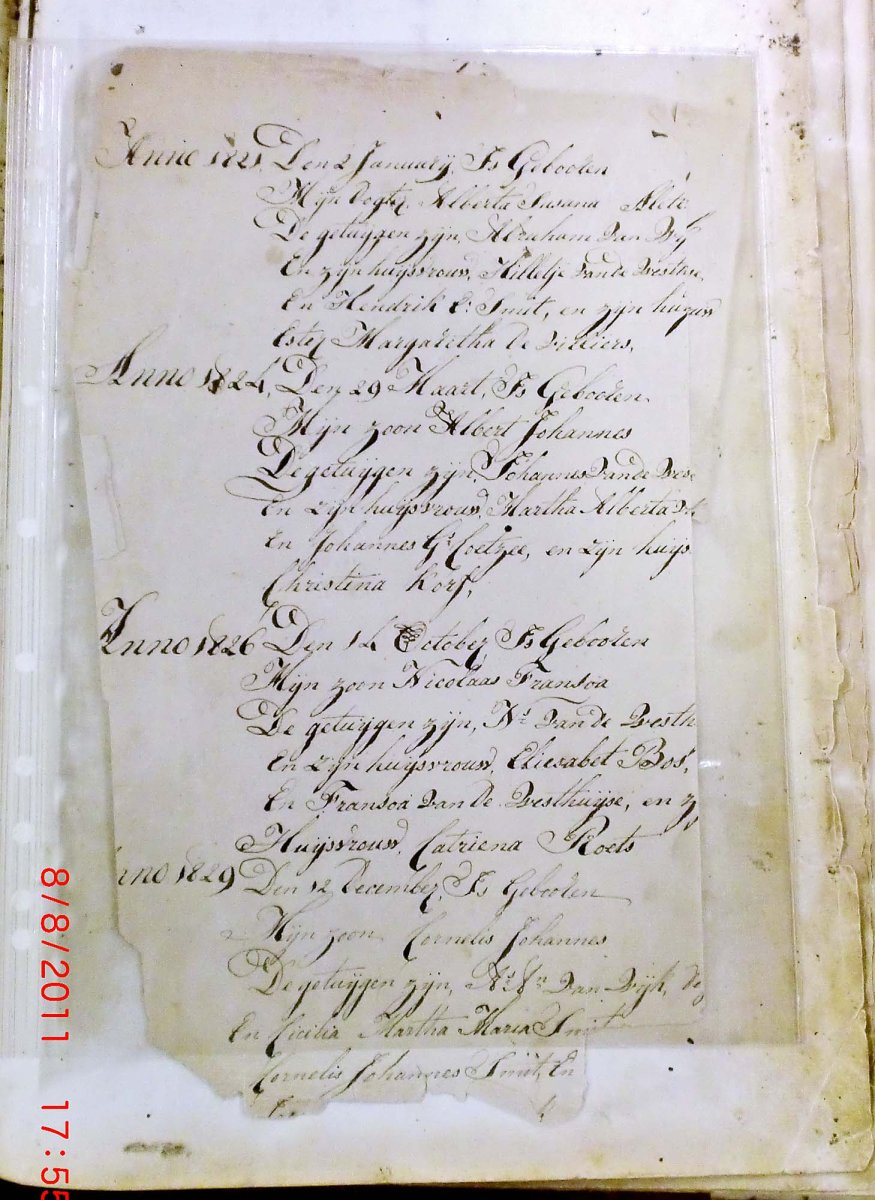 Anno 1821, Den 2 January, Is Gebooren
Mijn Dogter Alberta Susana Aletc
De getuygen zijn, Abraham van Wy
En zijn huijsvrouw, Hilletje van de Westhuse
En Hendrik C: Smit, en zijn huijsv
Ester Margaretha De Villiers,
Anno 1824, Den 29 Maart, Is Gebooren
Mijn zoon Albert Johannes
De getuijgen zijn, Johannes van de Wes
En zijn huijsvrouw, Martha Alberta
En Johannes G: Coetzee, en zijn huijs
Christina Korf,
Anno 1826 Den 14 October Is Gebooren
Mijn zoon Nicolaas Fransoa
De getuijgen zijn, Ns van de Westh
En zijn huijsvrouw, Eliesabet Bos,
En Fransoa van De Westhuijse, en z
Huijsvrouw, Catriena Roets
nno 1829 Den 12 December, Is Gebooren
Mijn zoon Cornelis Johannes
De getuijgen zijn, van Wijk,
En Cicilia Martha Maria Smit
Cornelis Johannes Smit, En
8/8/2011 17:55